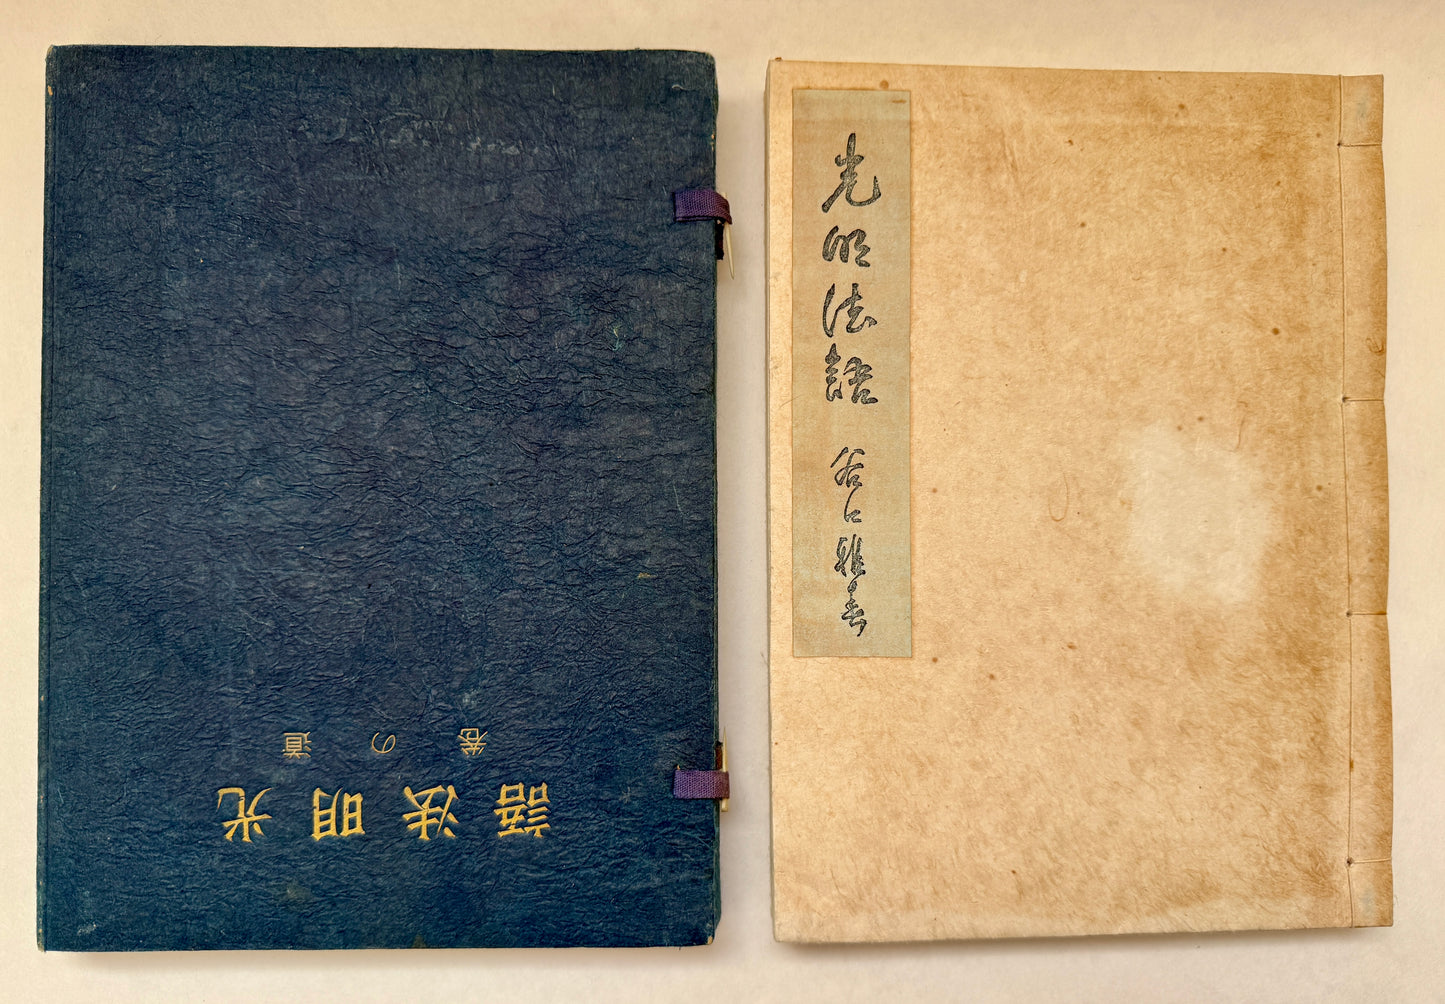 光明法語
道の巻
光明法語 谷口雅春